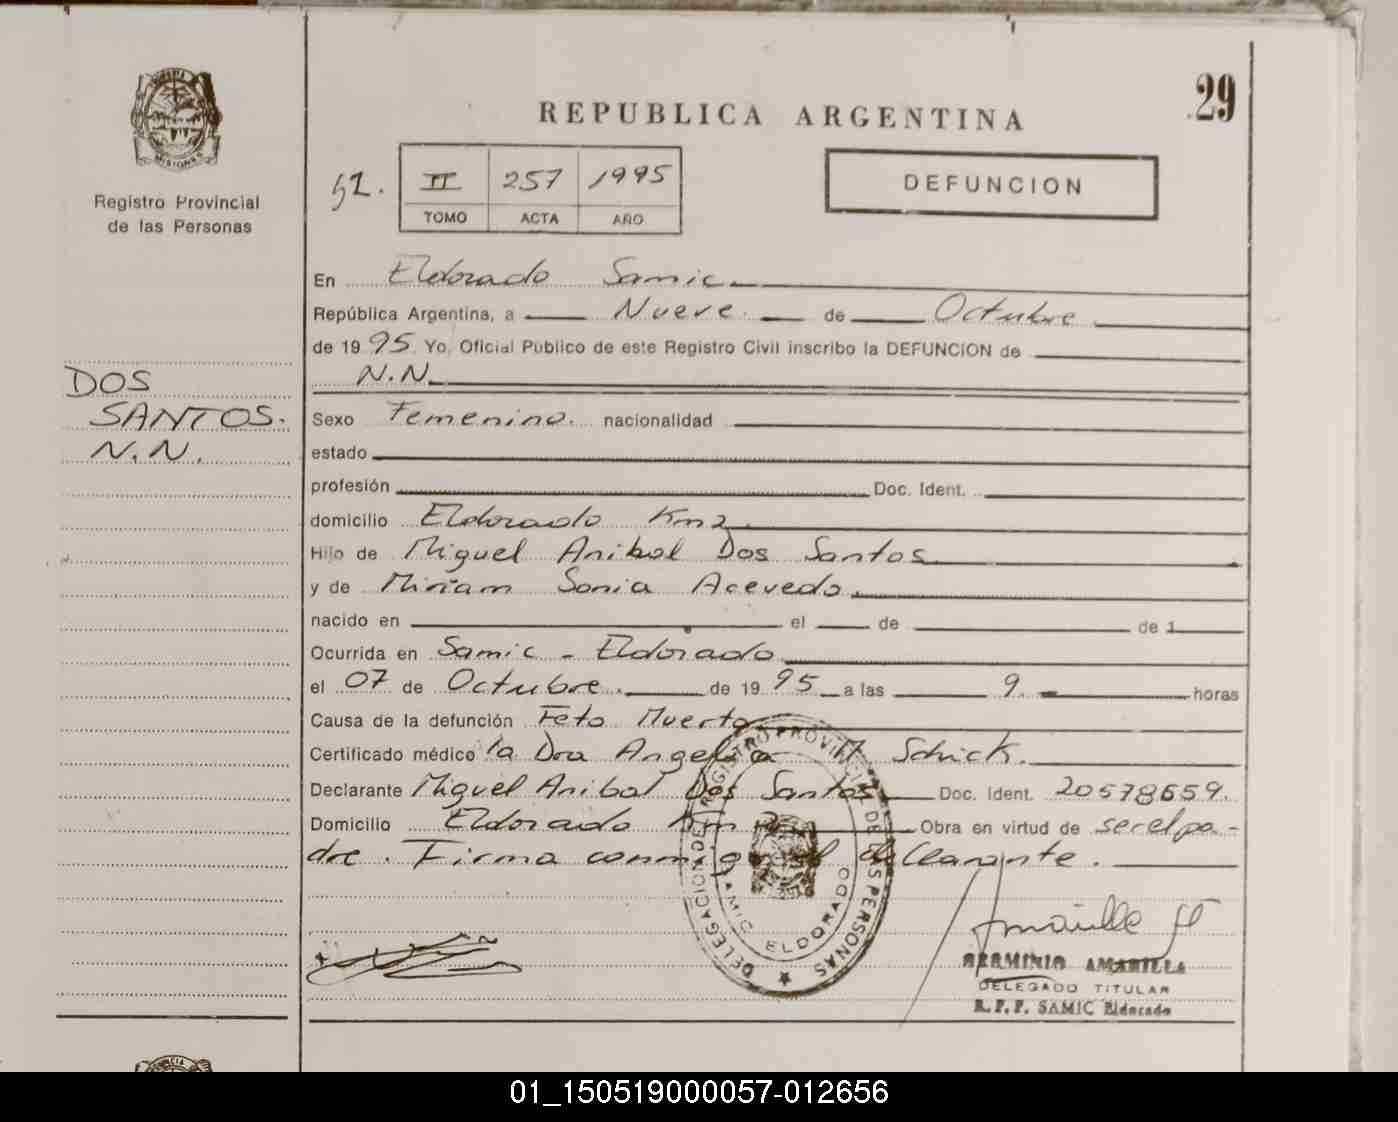 29
REPUBLICA ARGENTINA
PROVINCIA DE
MISIONES
Registro Provincial
de las Personas
52.
II 257 1995
TOMO ACTA AÑO
DEFUNCION
En Eldorado Samic
República Argentina, a Nueve de Octubre
de 1995 Yo, Oficial Público de este Registro Civil inscribo la DEFUNCION de
N.N.
DOS
SANTOS.
N.N.
Sexo Femenino. nacionalidad
estado
profesión Doc. Ident.
domicilio Eldorado Km 2
Hijo de Miguel Anibal Dos Santos
y de Miriam Sonia Acevedo.
nacido en el de de 1
Ocurrida en Samic - Eldorado
el 07 de Octubre. de 1995 a las 9. horas
Causa de la defunción Feto Muerto
Certificado médico la Dra Angelica M. Schick.
Declarante Miguel Anibal Dos Santos Doc. Ident. 20578659.
Domicilio Eldorado Km 2 Obra en virtud de ser el pa-
dre. Firma conmigo el declarante.
DELEGACION DEL REGISTRO PROVINCIAL DE LAS PERSONAS
SAMIC ELDORADO
HERMINIO AMARILLA
DELEGADO TITULAR
R.P.P. SAMIC Eldorado
01_150519000057-012656